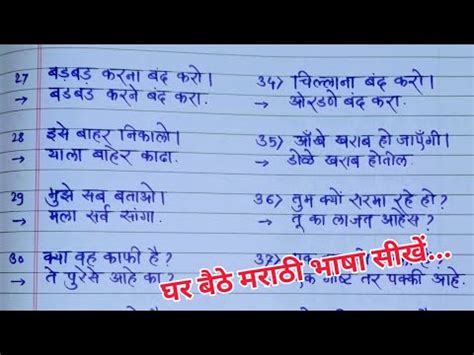 27 बड़बड़ करना बंद करो।
→ बडबड करने बंद करा.
28 इसे बाहर निकालो।
→ याला बाहेर काढा.
29 मुझे सब बताओ।
→ मला सर्व सांगा.
30 क्या वह काफी है?
→ ते पुरेसे आहे का?
34> चिल्लाना बंद करो।
→ ओरडणे बंद करा.
35> आँखे खराब हो जाएँगी।
→ डोळे खराब होतील.
36> तुम क्यों शरमा रहे हो?
→ तू का लाजत आहेस?
37>
तर पक्की आहे.
घर बैठे मराठी भाषा सीखें...